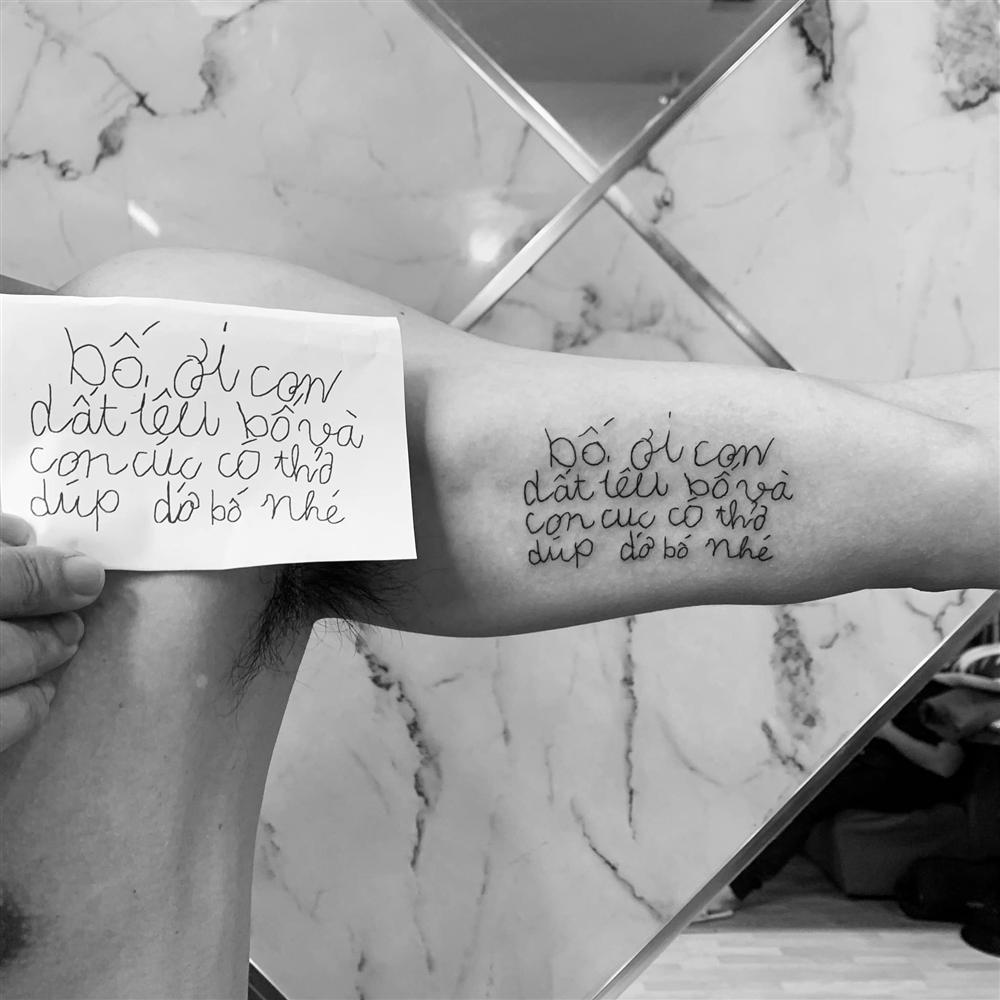 bố ơi con
dất lêu bố và
con cúc cõ thở
dúp dớ bố nhé
bố ơi con
dất lêu bố và
con cuc cõ thở
dúp dớ bố nhé